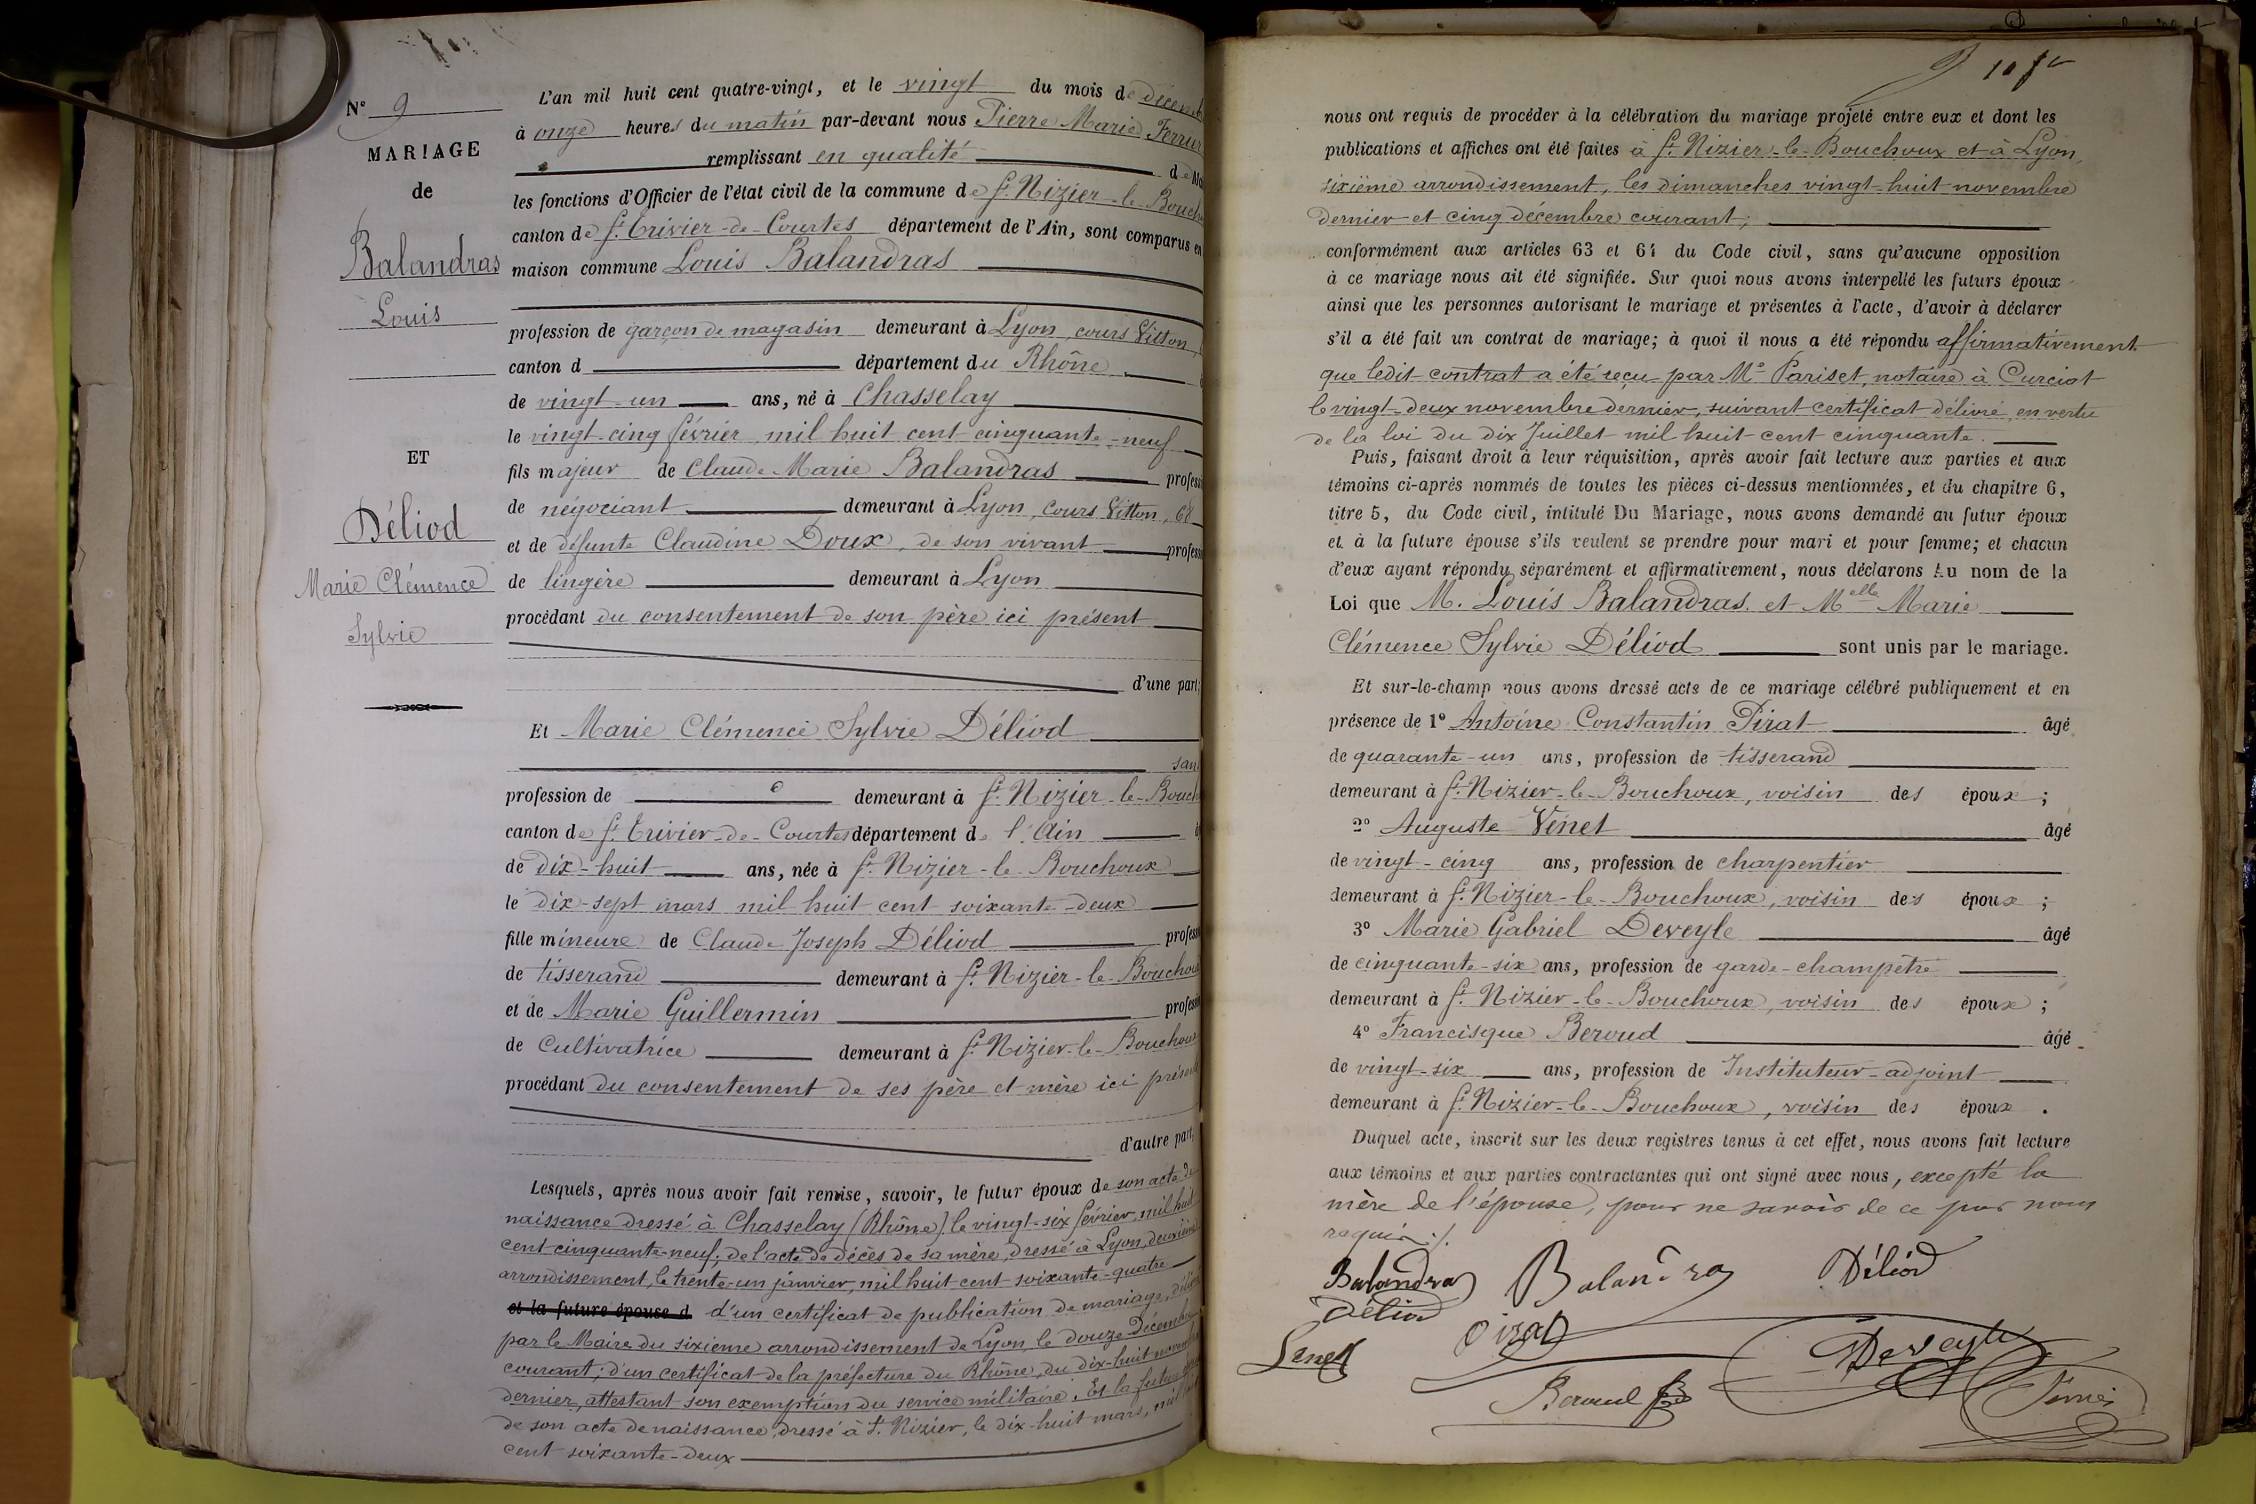 N° 9
MARIAGE
de
Balandras
Louis
ET
Déliod
Marie Clémence
Sylvie
L'an mil huit cent quatre-vingt, et le vingt du mois de décemb
à onze heures du matin par-devant nous Pierre Marie
remplissant en qualité de
les fonctions d'Officier de l'état civil de la commune de St Nizier-le-Bouch
canton de St Trivier-de-Courtes département de l'Ain, sont comparus en
maison commune Louis Balandras
profession de garçon de magasin demeurant à Lyon, cours Vitton,
canton d département du Rhône
de vingt-un ans, né à Chasselay
le vingt-cinq février mil huit cent cinquante-neuf
fils majeur de Claude Marie Balandras profess
de négociant demeurant à Lyon, cours Vitton,
et de défunte Claudine Doux, de son vivant profess
de lingère demeurant à Lyon
procédant du consentement de son père ici présent
d'une part;
Et Marie Clémence Sylvie Déliod
san
profession de demeurant à St Nizier-le-Bouch
canton de St Trivier-de-Courtes département de l'Ain
de dix-huit ans, née à St Nizier-le-Bouchoux
le dix-sept mars mil huit cent soixante-deux
fille mineure de Claude Joseph Déliod profess
de tisserand demeurant à St Nizier-le-Bouchou
et de Marie Guillermin profess
de Cultivatrice demeurant à St Nizier-le-Bouchou
procédant du consentement de ses père et mère ici présen
d'autre part,
Lesquels, après nous avoir fait remise, savoir, le futur époux de son acte de
naissance dressé à Chasselay (Rhône) le vingt-six février mil huit
cent cinquante-neuf; de l'acte de décès de sa mère, dressé à Lyon, deuxième
arrondissement, le trente-un janvier, mil huit cent soixante-quatre
et la future épouse d d'un certificat de publication de mariage, délivré
par le Maire du sixième arrondissement de Lyon, le douze Décembre
courant; d'un certificat de la préfecture du Rhône, du dix-huit novembre
dernier, attestant son exemption du service militaire. Et la future
de son acte de naissance, dressé à St Nizier, le dix-huit mars, mil
cent soixante-deux
nous ont requis de procéder à la célébration du mariage projeté entre eux et dont les
publications et affiches ont été faites à St Nizier-le-Bouchoux et à Lyon,
sixième arrondissement, les dimanches vingt-huit novembre
dernier et cinq décembre courant;
conformément aux articles 63 et 64 du Code civil, sans qu'aucune opposition
à ce mariage nous ait été signifiée. Sur quoi nous avons interpellé les futurs époux
ainsi que les personnes autorisant le mariage et présentes à l'acte, d'avoir à déclarer
s'il a été fait un contrat de mariage; à quoi il nous a été répondu affirmativement
que ledit contrat a été reçu par Me Pariset, notaire à Curciat
le vingt-deux novembre dernier, suivant certificat délivré en vertu
de la loi du dix Juillet mil huit cent cinquante.
Puis, faisant droit à leur réquisition, après avoir fait lecture aux parties et aux
témoins ci-après nommés de toutes les pièces ci-dessus mentionnées, et du chapitre 6,
titre 5, du Code civil, intitulé Du Mariage, nous avons demandé au futur époux
et à la future épouse s'ils veulent se prendre pour mari et pour femme; et chacun
d'eux ayant répondu séparément et affirmativement, nous déclarons Au nom de la
Loi que M. Louis Balandras et Melle Marie
Clémence Sylvie Déliod sont unis par le mariage.
Et sur-le-champ nous avons dressé acte de ce mariage célébré publiquement et en
présence de 1° Antoine Constantin Pirat âgé
de quarante-un ans, profession de tisserand
demeurant à St Nizier-le-Bouchoux, voisin des époux;
2° Auguste Venet âgé
de vingt-cinq ans, profession de charpentier
demeurant à St Nizier-le-Bouchoux, voisin des époux;
3° Marie Gabriel Deveyle âgé
de cinquante-six ans, profession de garde-champêtre
demeurant à St Nizier-le-Bouchoux, voisin des époux;
4° Francisque Beroud âgé
de vingt-six ans, profession de Instituteur-adjoint
demeurant à St Nizier-le-Bouchoux, voisin des époux.
Duquel acte, inscrit sur les deux registres tenus à cet effet, nous avons fait lecture
aux témoins et aux parties contractantes qui ont signé avec nous, excepté la
mère de l'épouse, pour ne savoir de ce par nous
requise./.
Balandras Balandras Déliod
Déliod
Venet Pirat Deveyle
Beroud